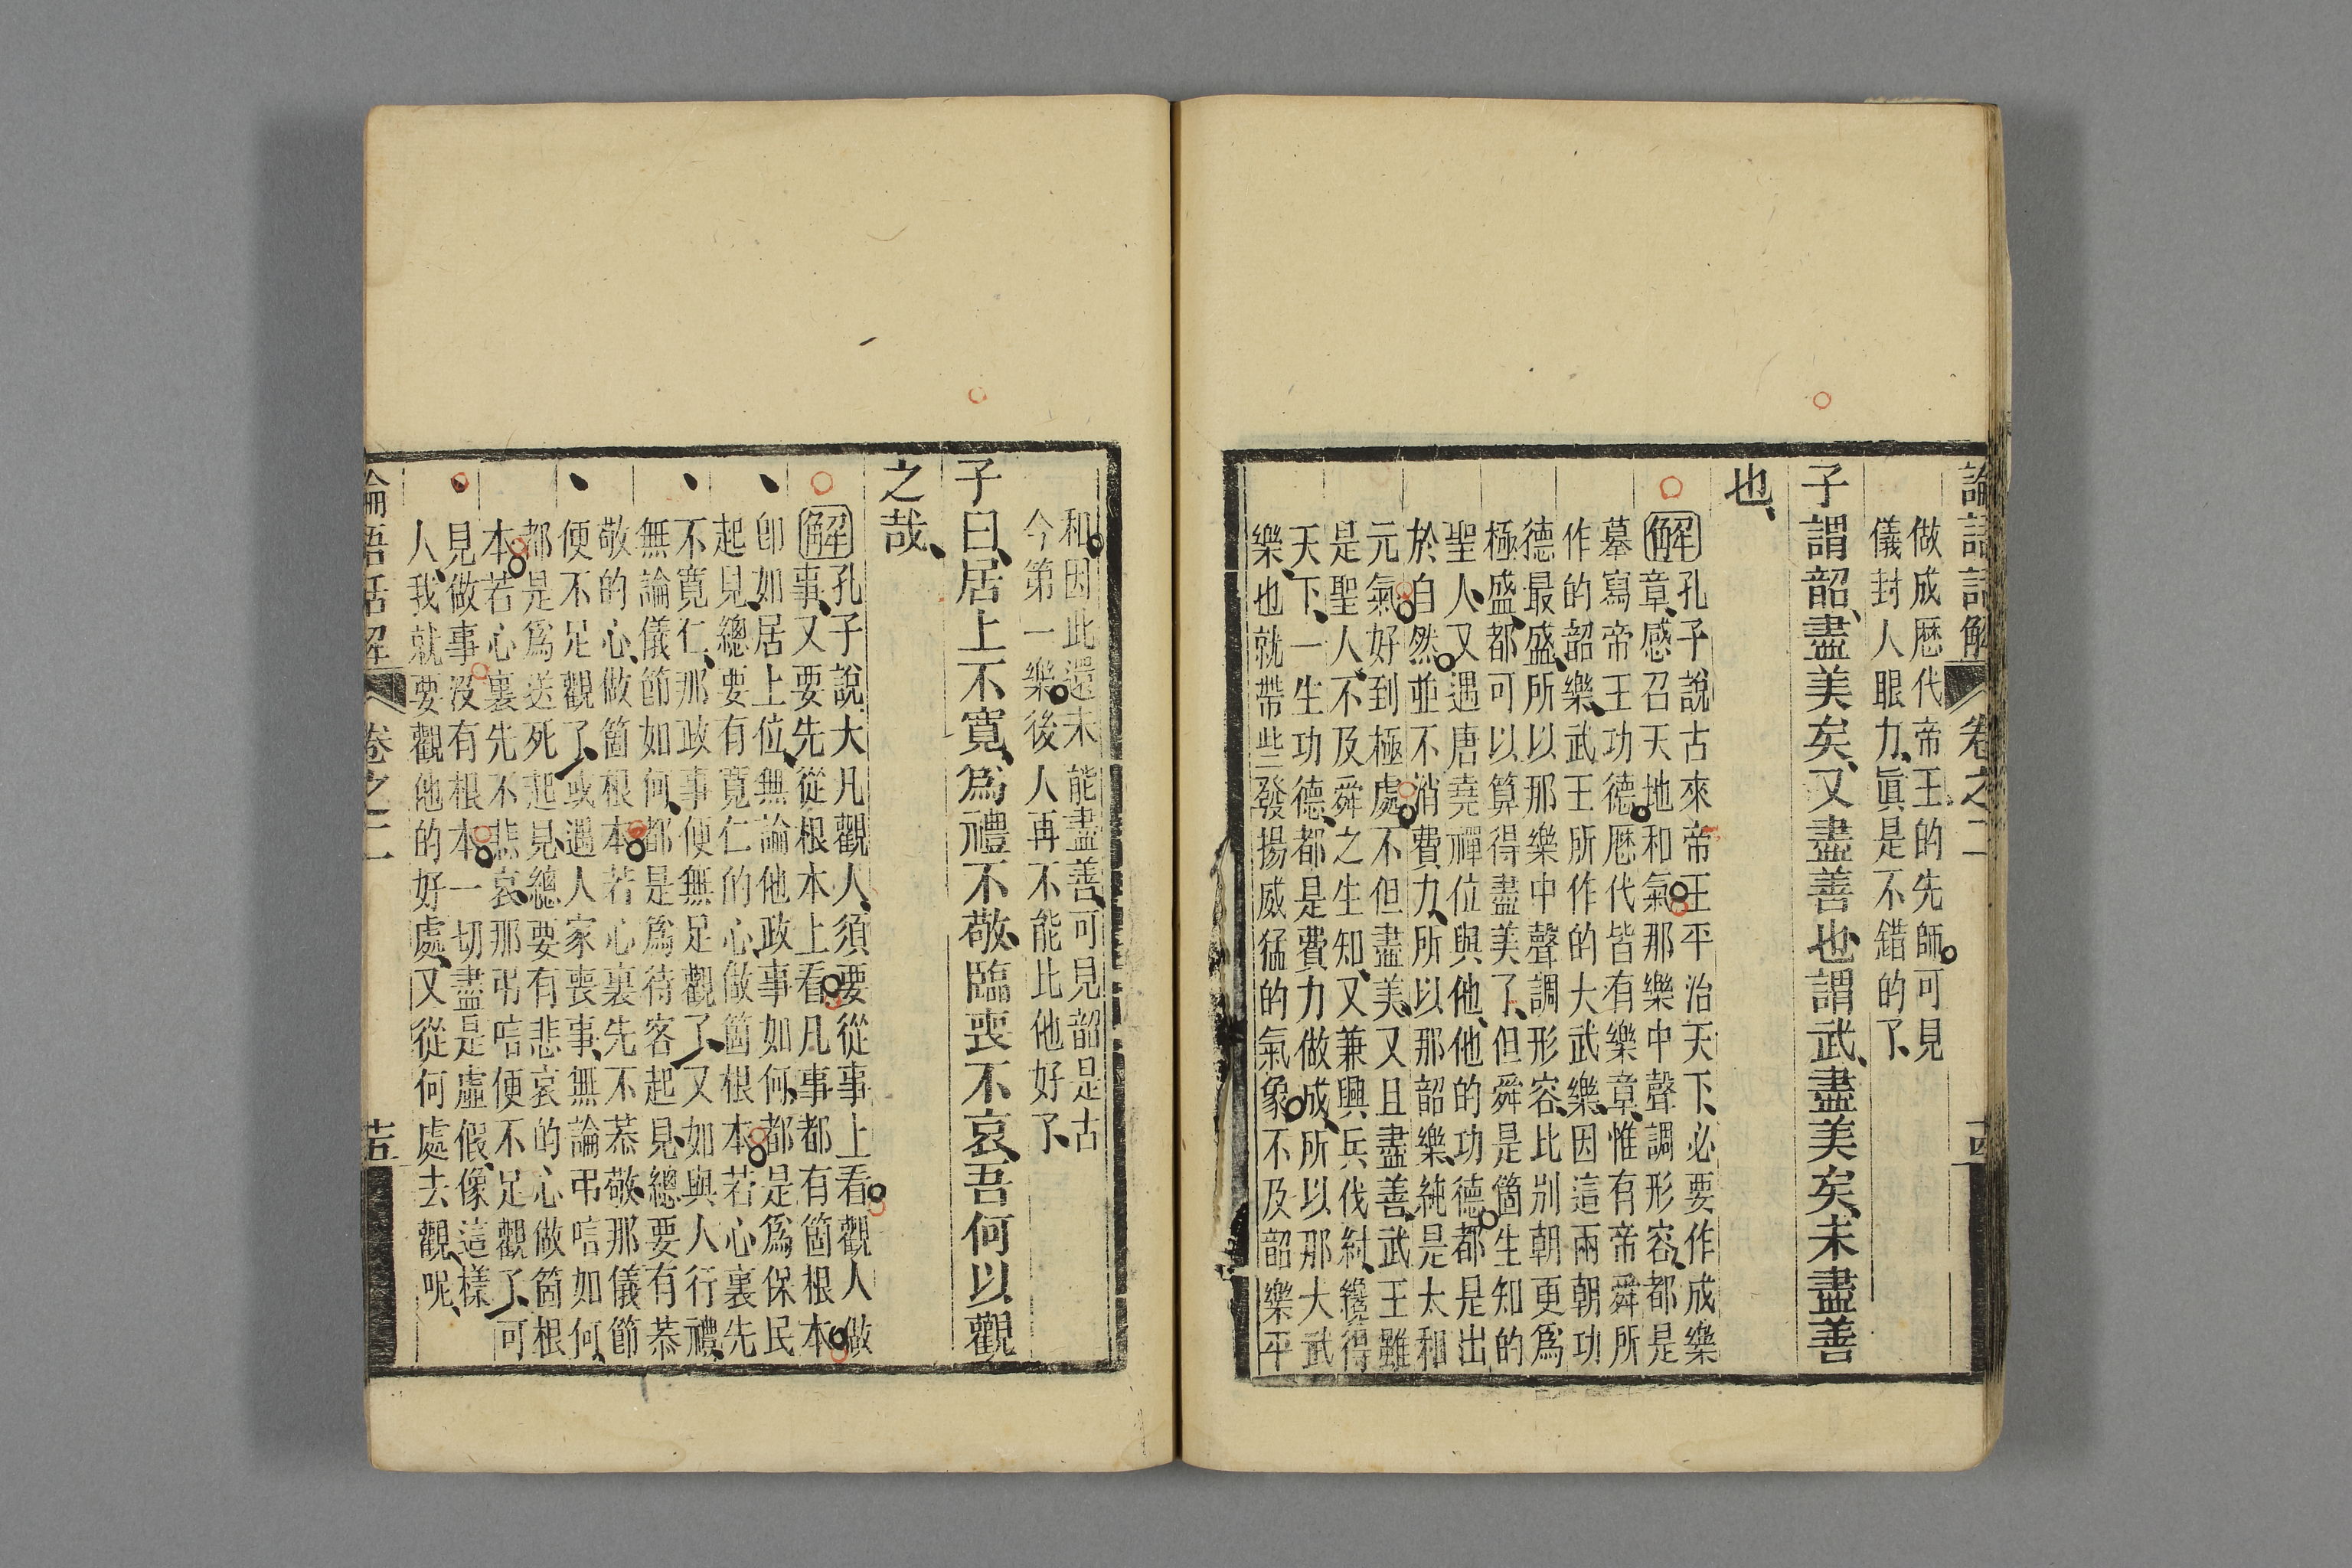 論語話解
卷之二
做成歷代帝王的先師可見
儀封人眼力眞是不錯的了
子謂韶盡美矣又盡善也謂武盡美矣未盡善
也
解孔子說古來帝王平治天下必要作成樂
章感召天地和氣那樂中聲調形容都是
摹寫帝王功德歷代皆有樂章惟有帝舜所
作的韶樂武王所作的大武樂因這兩朝功
德最盛所以那樂中聲調形容比別朝更爲
極盛都可以算得盡美了但舜是箇生知的
聖人又遇唐堯禪位與他他的功德都是出
於自然並不消費力所以那韶樂純是太和
元氣好到極處不但盡美又且盡善武王雖
是聖人不及舜之生知又兼興兵伐紂纔得
天下一生功德都是費力做成所以那大武
樂也就帶些發揚威猛的氣象不及韶樂平
和因此還未能盡善可見韶是古
今第一樂後人再不能比他好了
子曰居上不寬爲禮不敬臨喪不哀吾何以觀
之哉
解孔子說大凡觀人須要從事上看觀人做
事又要先從根本上看凡事都有箇根本
卽如居上位無論他政事如何都是爲保民
起見總要有寬仁的心做箇根本若心裏先
不寬仁那政事便無足觀了又如與人行禮
無論儀節如何都是爲待客起見總要有恭
敬的心做箇根本若心裏先不恭敬那儀節
便不足觀了或遇人家喪事無論弔唁如何
都是爲送死起見總要有悲哀的心做箇根
本若心裏先不悲哀那弔唁便不足觀了可
見做事沒有根本一切盡是虛假像這樣
人我就要觀他的好處又從何處去觀呢
論語話解
卷之二
十五